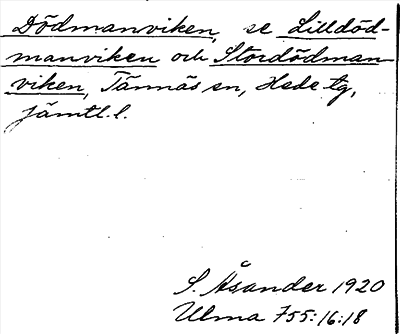 Dödmanviken, se Lilldöd-
manviken och Stordödman-
viken, Tännäs sn, Hede tg,
Jämtl. l.
S. Åsander 1920
Ulma 755:16:18